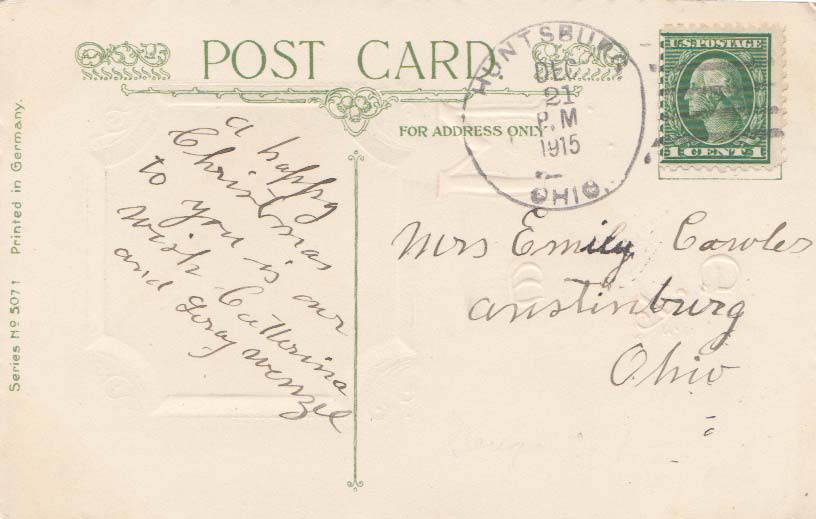 POST CARD
FOR ADDRESS ONLY
HUNTSBURG
DEC
21
P.M
1915
OHIO.
U.S. POSTAGE
1 CENT 1
Series No 5071 Printed in Germany.
a happy
Christmas
to you is our
wish Catherina
and Wenzel
Mrs Emily Cowles
austinburg
Ohio